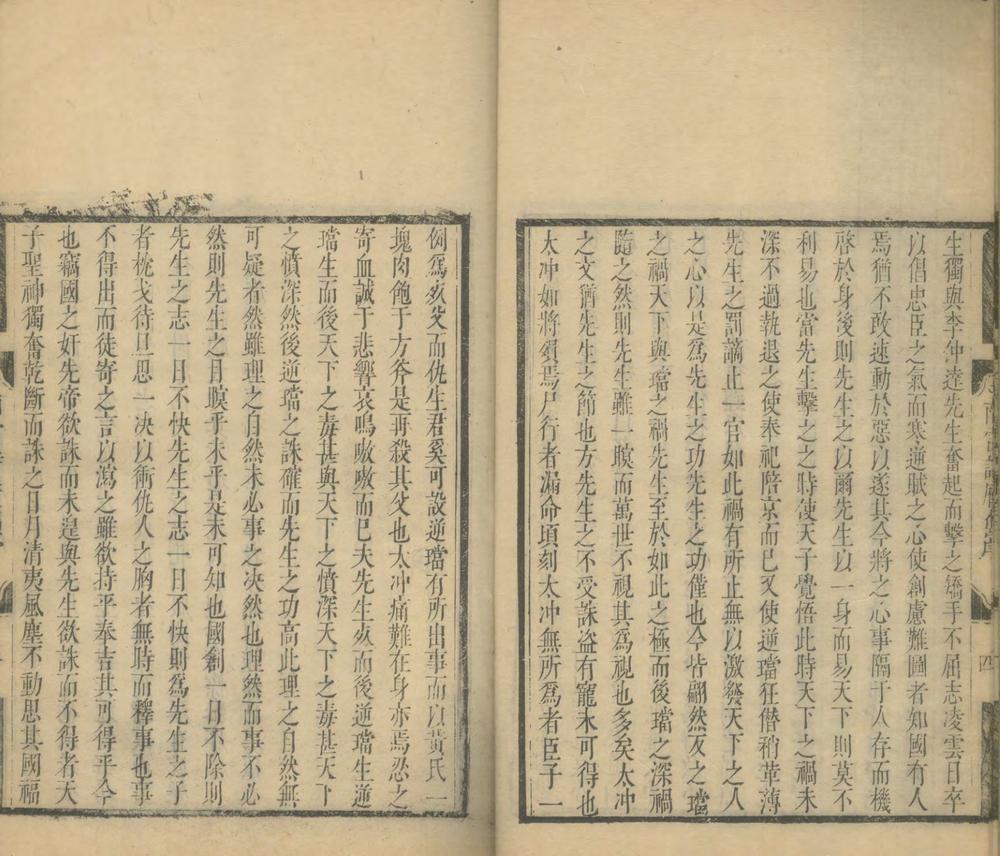 生獨與李仲達先生奮起而擊之矯手不屈志凌雲日卒
以倡忠臣之氣而寒逆賊之心使創慮難圖者知國有人
焉猶不敢速動於惡以遂其今將之心事隔于人存而機
啓於身後則先生之以爾先生以一身而易天下則莫不
利易也當先生擊之之時使天子覺悟此時天下之禍未
深不過執退之使奉祀陪京而已又使逆璫狂僭稍革薄
先生之罰謫止一官如此禍有所止無以激發天下之人
之心以是爲先生之功先生之功僅也今皆翩然友之璫
之禍天下與璫之禍先生至於如此之極而後璫之深禍
隨之然則先生雖一瞑而萬世不視其爲視也多矣太冲
之文猶先生之節也方先生之不受誅盜有寵未可得也
太冲如將殞焉尸行者漏命頃刻太冲無所爲者臣子一
例爲㳄父而仇生君奚可設逆璫有所出事而以黃氏一
塊肉飽于方斧是再殺其父也太冲痛難在身亦焉忍之
寄血誠于悲響哀鳴嗷嗷而已夫先生㳄而後逆璫生逆
璫生而後天下之毒甚與天下之憤深天下之毒甚天下
之憤深然後逆璫之誅確而先生之功高此理之自然無
可疑者然雖理之自然未必事之决然也理然而事不必
然則先生之目瞑乎未乎是未可知也國創一日不除則
先生之志一日不快先生之志一日不快則爲先生之子
者枕戈待旦思一决以衝仇人之胸者無時而釋事也事
不得出而徒寄之言以瀉之雖欲持平奉吉其可得乎今
也竊國之奸先帝欲誅而未遑與先生欲誅而不得者天
子聖神獨奮乾斷而誅之日月清夷風塵不動思其國福
四